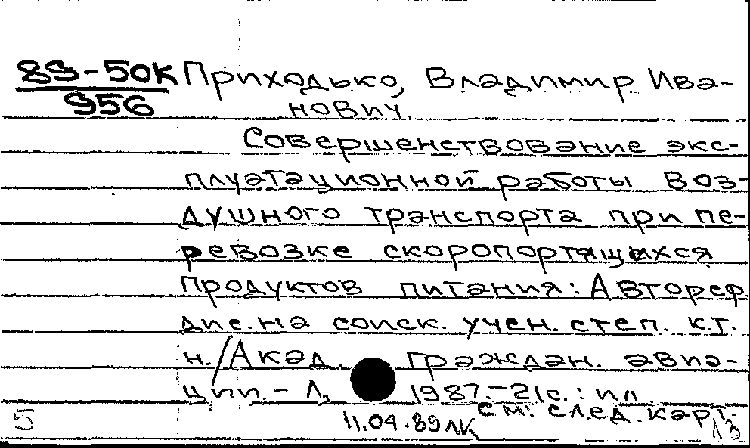 89-50К Приходько, Владимир Ива-
956 нович.
Совершенствование экс-
плуатационной работы воз-
душного транспорта при пе-
ревозке скоропортящихся
продуктов питания: Автореф
дис. на соиск. учен. степ. к.т.
н. / Акад. граждан. авиа-
ции. - Л, 1987.-21с.: ил
см. след. карт.
5 11.04.89